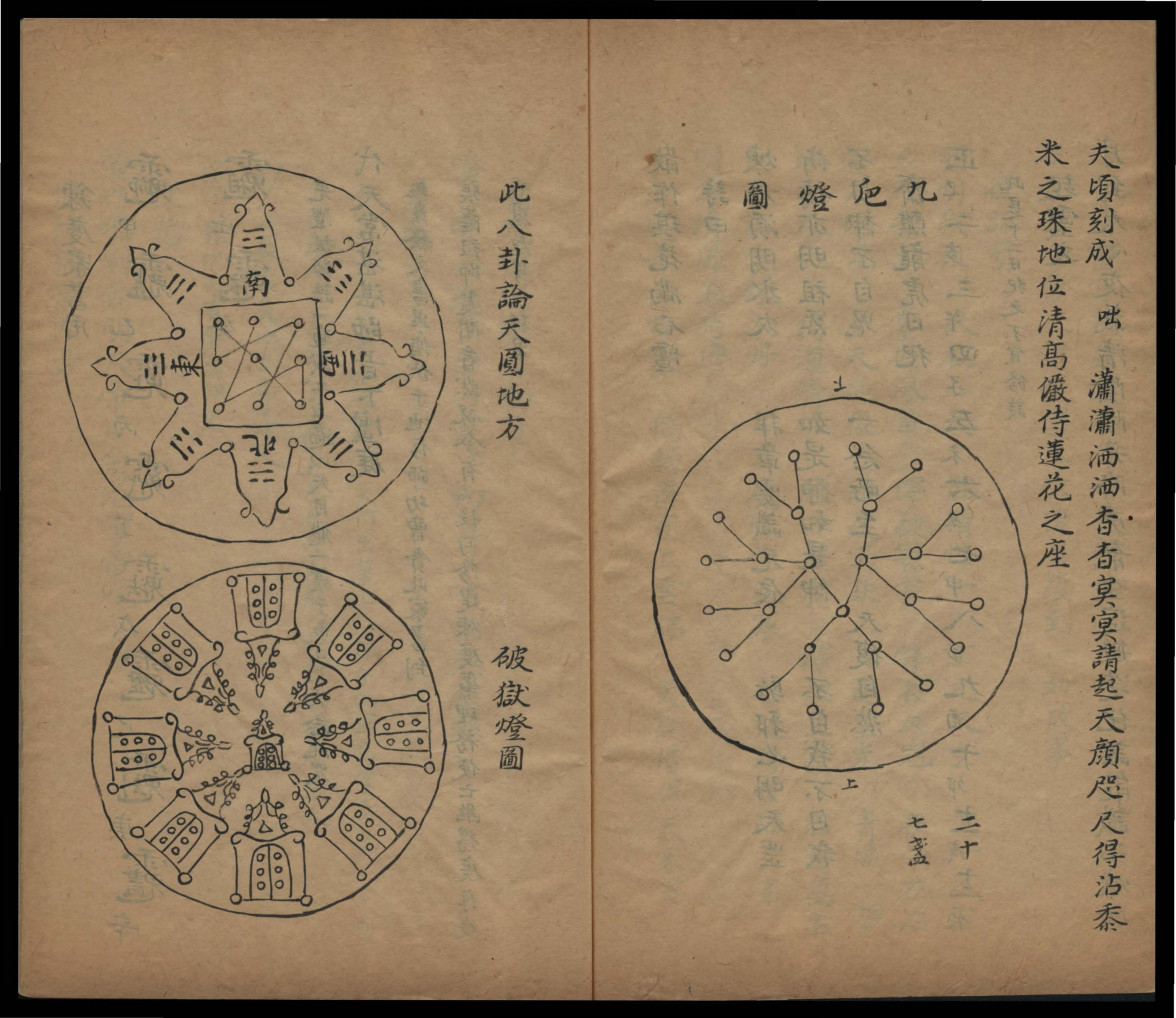 夫頃刻成　咄　瀟瀟洒洒杳杳㝠㝠請起天顔咫尺得沾黍
米之珠地位清髙儼侍蓮花之座
九
巵
燈
圖
上
上
二十
七盞
此八卦論天圓地方
南
東
西
北
破獄燈圖